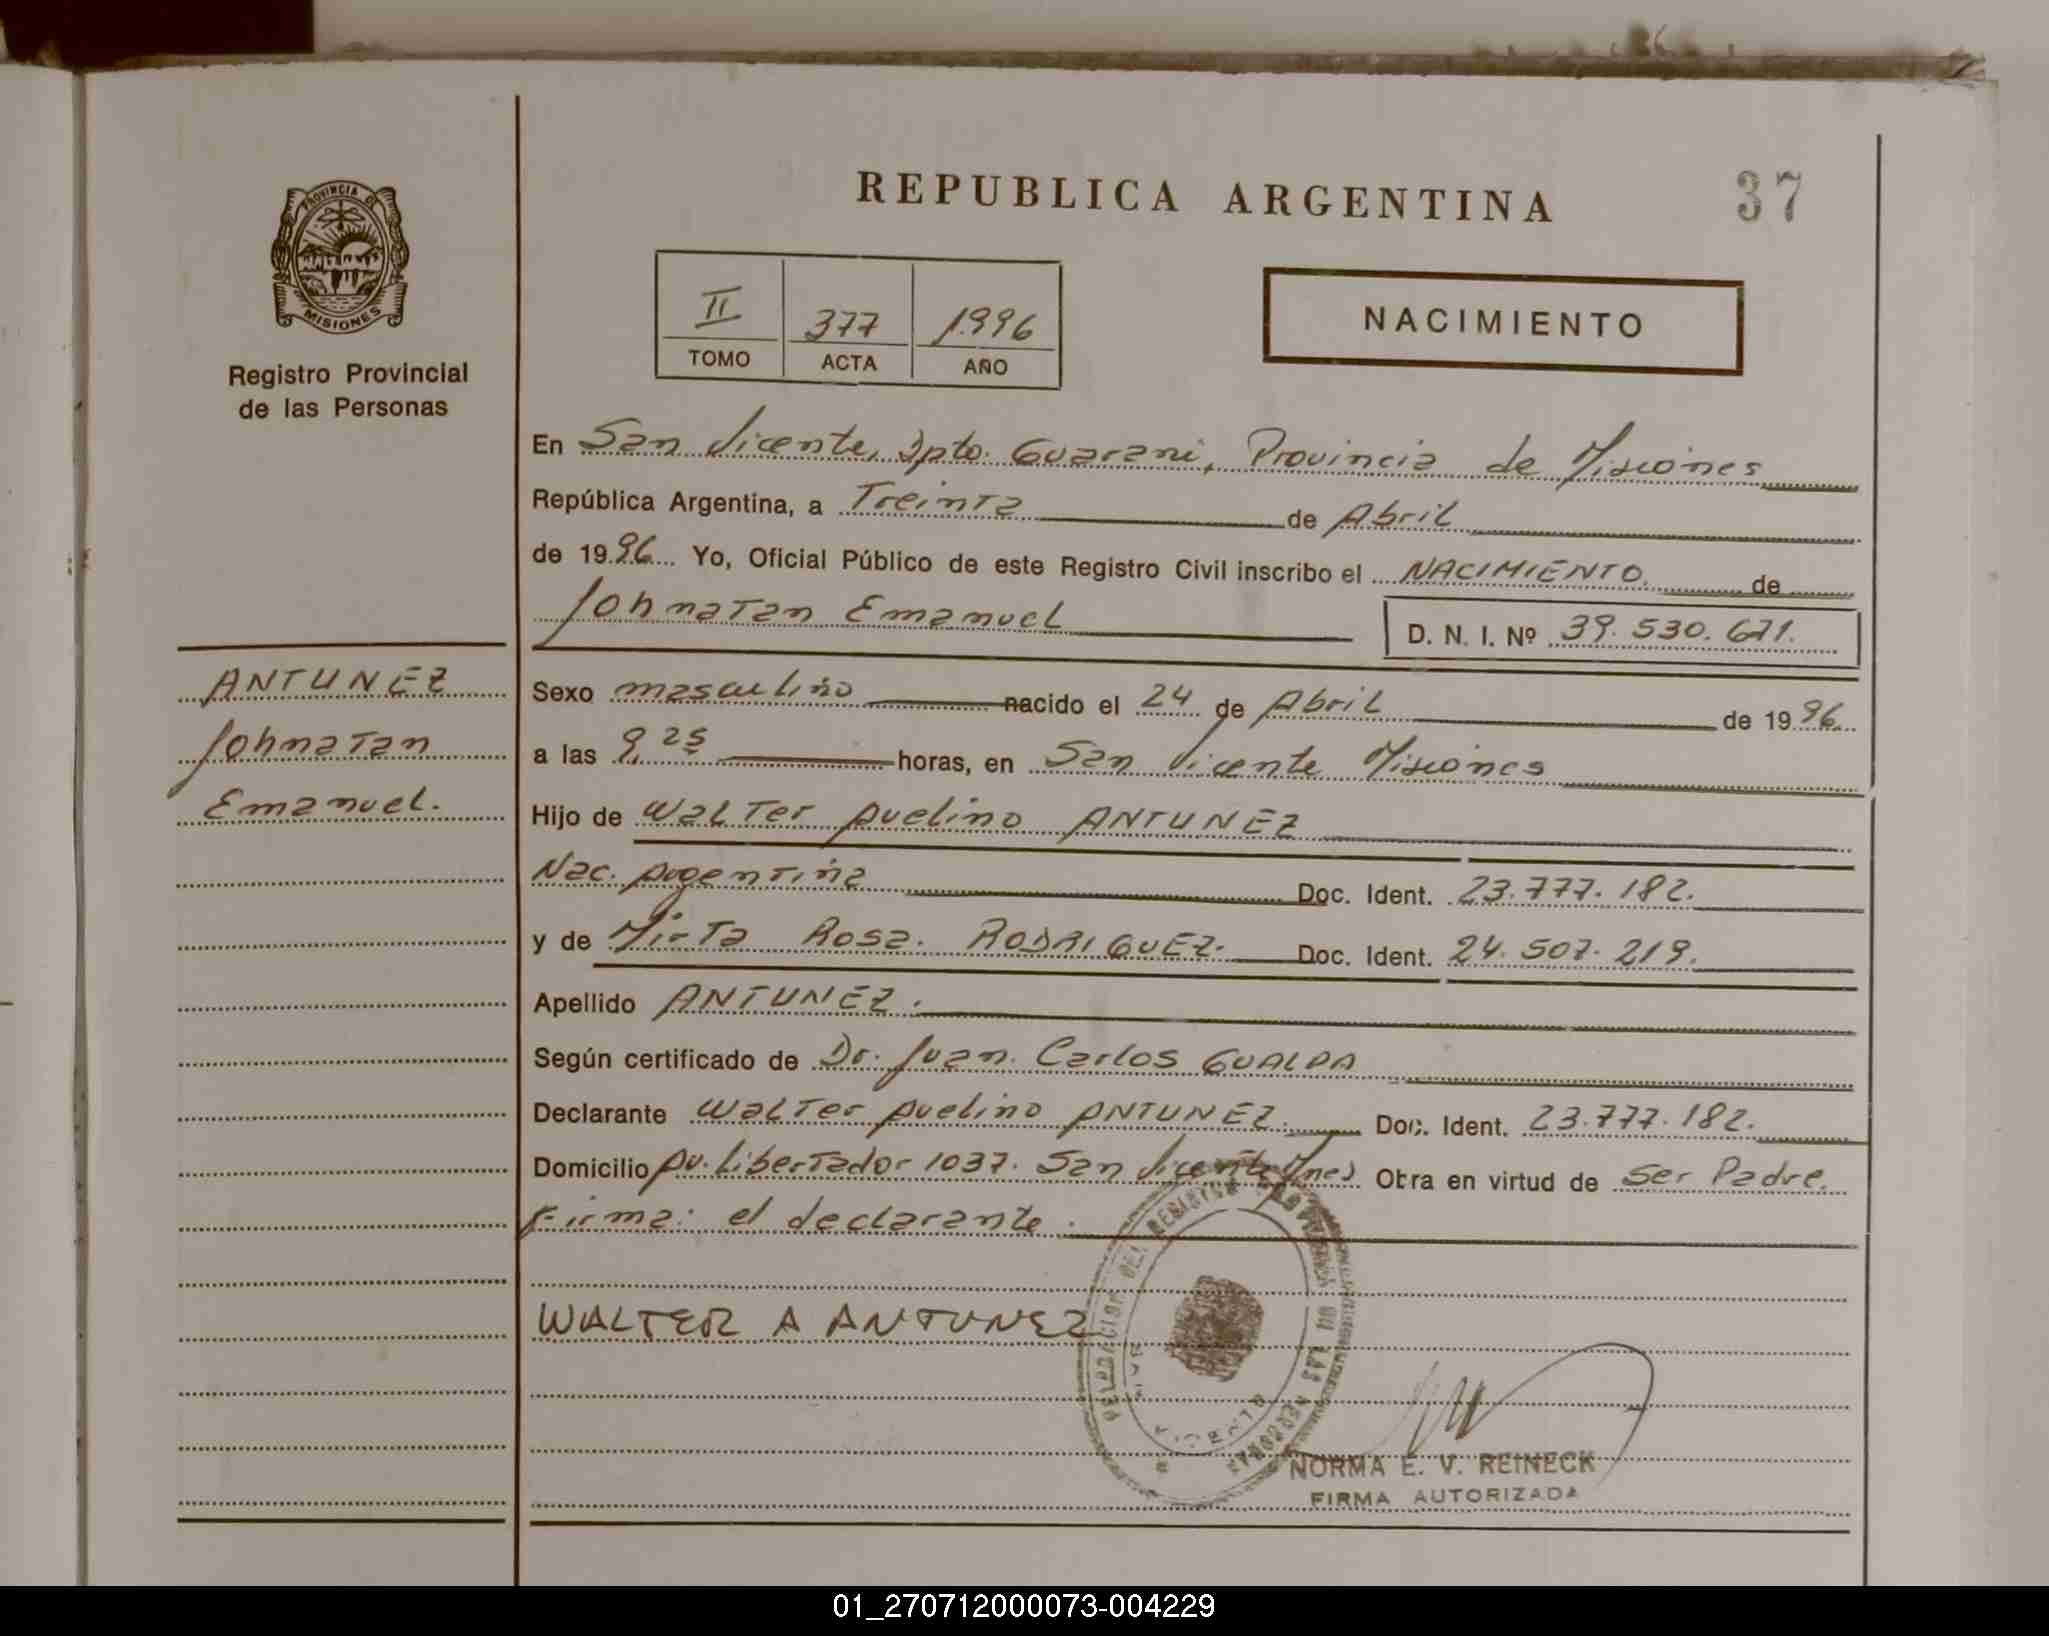 REPUBLICA ARGENTINA
37
PROVINCIA DE
MISIONES
Registro Provincial
de las Personas
II 377 1996
TOMO ACTA AÑO
NACIMIENTO
En San Vicente, Dpto. Guarani, Provincia de Misiones
República Argentina, a Treinta de Abril
de 1996 Yo, Oficial Público de este Registro Civil inscribo el NACIMIENTO de
Johnatan Emanuel D. N. I. Nº 39.530.671.
ANTUNEZ
Johnatan
Emanuel.
Sexo masculino nacido el 24 de Abril de 1996
a las 9,25 horas, en San Vicente Misiones
Hijo de Walter Avelino ANTUNEZ
Nac. Argentina Doc. Ident. 23.777.182.
y de Mirta Rosa. RODRIGUEZ. Doc. Ident. 24.507.219.
Apellido ANTUNEZ.
Según certificado de Dr. Juan Carlos GUALDA
Declarante Walter Avelino ANTUNEZ. Doc. Ident. 23.777.182.
Domicilio Av. Libertador 1037. San Vicente Mnes Obra en virtud de Ser Padre.
Firma: el declarante.
WALTER A ANTUNEZ
DELEGACION DEL REGISTRO PROVINCIAL DE LAS PERSONAS
NORMA E. V. REINECK
FIRMA AUTORIZADA
01_270712000073-004229